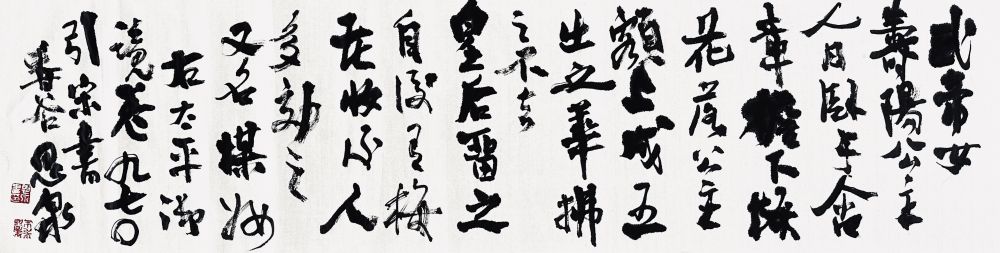 武帝女
壽陽公主
人日臥于含
章檐下梅
花落公主
額上成五
出之華拂
之不去
皇后留之
自後有梅
花妝後人
多効之
又名楳妝
右太平御
境卷九七〇
引宋書
春谷